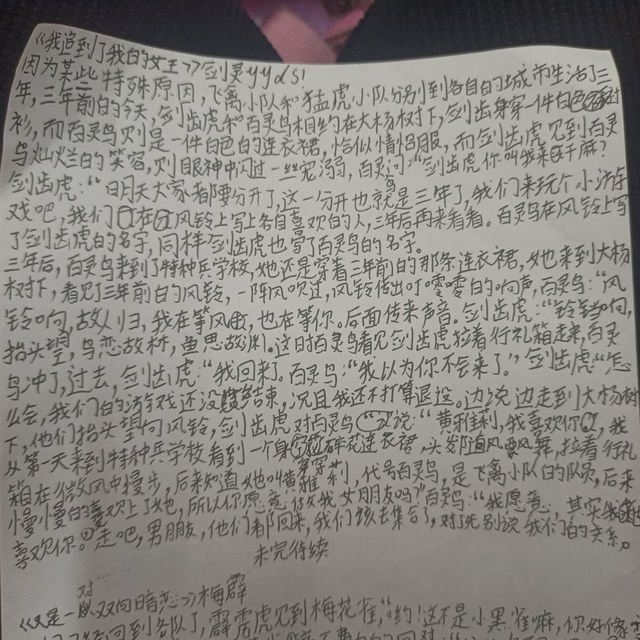 《我追到了我的女王》剑灵yyds!
因为某些特殊原因,飞离小队和猛虎小队分别到各自的城市生活了三
年,三年前的今天,剑齿虎和百灵鸟相约在大杨树下,剑齿虎身穿一件白色衬
衫,而百灵鸟则是一件白色的连衣裙,恰似情侣服,而剑齿虎见到百灵
鸟灿烂的笑容,则眼神中闪过一丝宠溺,百灵问:“剑齿虎你叫我来干麻?
剑齿虎:“明天大家都要分开了,这一分开也就是三年了,我们来玩个小游
戏吧,我们在风铃上写上各自喜欢的人,三年后再来看看。百灵鸟在风铃上写
了剑齿虎的名字,同样剑齿虎也写了百灵鸟的名字。
三年后,百灵鸟来到了特种兵学校,她还是穿着三年前的那条连衣裙,她来到大杨
树下,看见了三年前的风铃,一阵风吹过,风铃传出叮零零的响声,百灵鸟:“风
铃响,故人归,我在等风,也在等你。后面传来声音。剑齿虎:“铃铛响,
抬头望,鸟恋故林,鱼思故渊。这时百灵鸟看见剑齿虎拉着行礼箱走来,百灵
鸟冲了,过去,剑齿虎:“我回来了。百灵鸟:“我以为你不会来了。”剑齿虎“怎
么会,我们的游戏还没结束,况且我还不打算退役。边说边走到大杨树
下,他们抬头望向风铃,剑齿虎对百灵鸟说:“黄雅莉,我喜欢你,我
从第一天来到特种兵学校看到一个身穿碎花连衣裙,头发随风飘舞,拉着行礼
箱在微风中慢步,后来知道她叫黄雅莉,代号百灵鸟,是飞离小队的队员,后来
慢慢的喜欢上了她,所以你愿意做我女朋友吗?百灵鸟:“我愿意,其实我也
喜欢你。走吧,男朋友,他们都回来,我们该去集合了,对了先别说我们的关系。
未完待续
《又是一对双向暗恋》梅霹
回到各队了,霹雳虎见到梅花雀:“哟!这不是小黑雀嘛,你好像